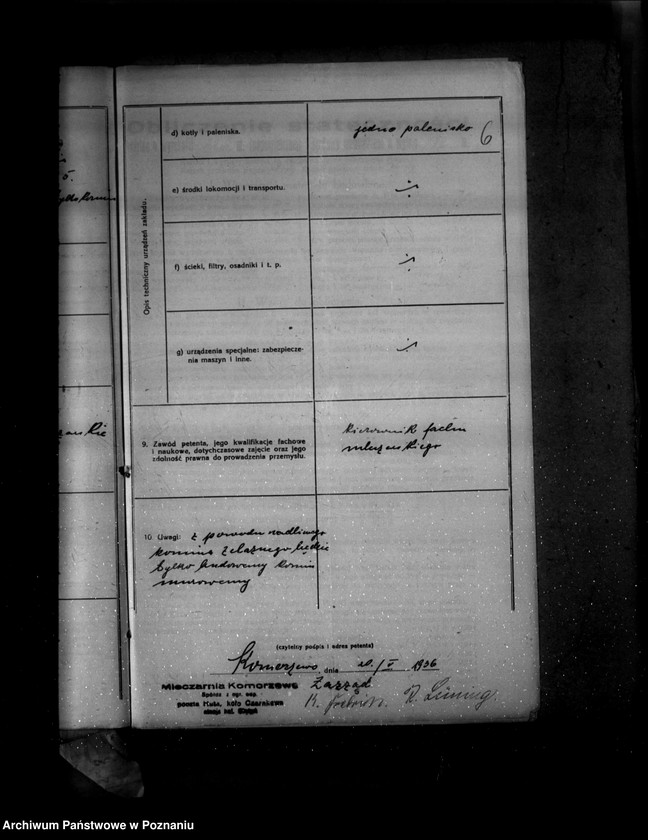 6
Opis techniczny urządzeń zakładu.
d) kotły i paleniska.
jedno palenisko
e) środki lokomocji i transportu.
f) ścieki, filtry, osadniki i t. p.
g) urządzenia specjalne: zabezpiecze-
nia maszyn i inne.
9. Zawód petenta, jego kwalifikacje fachowe
i naukowe, dotychczasowe zajęcie oraz jego
zdolność prawna do prowadzenia przemysłu.
kierownik fachu
mleczarskiego
10. Uwagi: z powodu
komina żelaznego będzie
tylko budowany komin
murowany
(czytelny podpis i adres petenta)
Komorzewo, dnia 20/V 1936
Mleczarnia Komorzewo
Spółdz. z ogr. odp.
poczta Kuźn. koło Czarnkowa
Zarząd